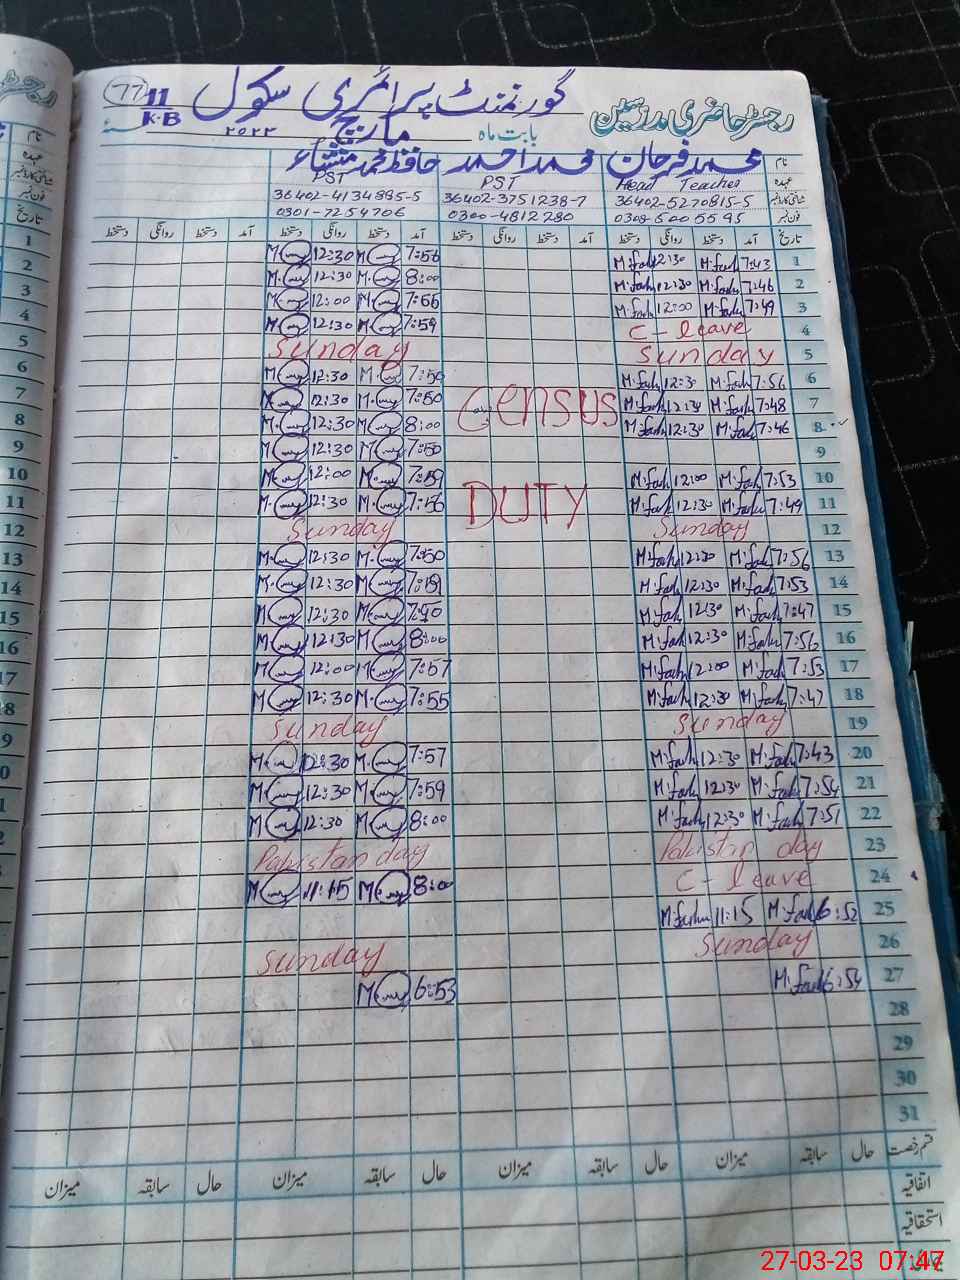 77
11
K.B
گورنمنٹ پرائمری سکول
رجسٹر حاضری مدرسین
بابت ماہ مارچ ۲۰۲۳
نام محمد فرحان محمد احمد حافظ محمد مشتاء
عہدہ Head Teacher PST PST
شناختی کارڈ نمبر 36402-5270815-5 36402-3751238-7 36402-4134995-5
فون نمبر 0308-6005595 0300-4812280 0301-7254706
تاریخ آمد دستخط روانگی دستخط آمد دستخط روانگی دستخط آمد دستخط روانگی دستخط آمد دستخط روانگی دستخط
1 7:43 M.farh 12:30 M.farh 7:56 12:30
2 7:46 M.farh 12:30 M.farh 8:00 12:30
3 7:49 M.farh 12:00 M.farh 12:00
4 C-leave 7:59 12:30
5 Sunday Sunday
6 7:56 M.farh 12:30 M.farh 7:50 12:30
7 7:48 M.farh 12:30 M.farh Census 7:50 12:30
8 7:46 M.farh 12:30 M.farh 8:00 12:30
9 7:50 12:30
10 7:53 M.farh 12:00 M.farh 12:00
11 7:49 M.farh 12:30 M.farh DUTY 7:56 12:30
12 Sunday Sunday
13 7:56 M.farh 12:30 M.farh 7:50 12:30
14 7:53 M.farh 12:30 M.farh 12:30
15 7:47 M.farh 12:30 M.farh 12:30
16 7:56 M.farh 12:30 M.farh 8:00 12:30
17 7:53 M.farh 12:00 M.farh 7:57 12:00
18 7:47 M.farh 12:30 M.farh 7:55 12:30
19 Sunday Sunday
20 7:43 M.farh 12:30 M.farh 7:57 12:30
21 7:54 M.farh 12:30 M.farh 7:59 12:30
22 7:51 M.farh 12:30 M.farh 8:00 12:30
23 Pakistan day Pakistan day
24 C-leave 8:00 11:15
25 6:52 M.farh 11:15 M.farhn
26 Sunday Sunday
27 6:54 M.farh 6:53
28
29
30
31
قسم رخصت حال سابقہ میزان حال سابقہ میزان حال سابقہ میزان حال سابقہ میزان
اتفاقیہ
استحقاقیہ
27-03-23 07:47